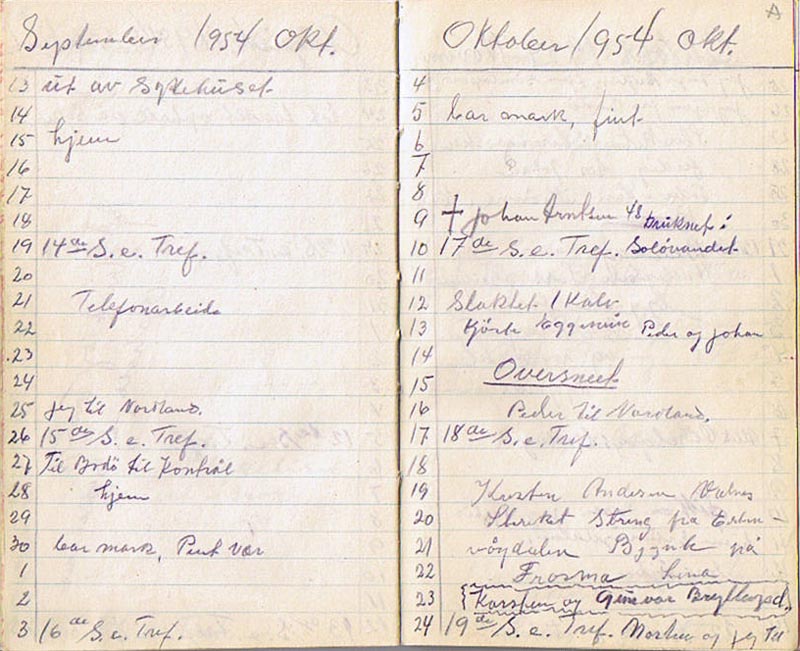 September 1954 Okt.
13 ut av Sykehuset
14
15 hjem
16
17
18
19 14de S. e. Tref.
20
21 Telefonarbeide
22
23
24
25 jeg til Nordland.
26 15de S. e. Tref.
27 Til Bodö til Kontröl
28 hjem
29
30 bar mark, Pent vær
1
2
3 16de S. e. Tref.
Oktober 1954 Okt.
4
5 bar mark, fint
6
7
8
9 † Johan Arntsen 48 druknet i
10 17de S. e. Tref. Soløvandet
11
12 Slaktet 1 Kalv
13 Kjörte Peder og Johan
14
15 Oversneet
16 Peder til Nordland.
17 18de S. e. Tref.
18
19 Andersen
20 Streng fra
21 på
22
23 Karsten og Gunvor Bryllupsd.
24 19de S. e. Tref. og jeg til